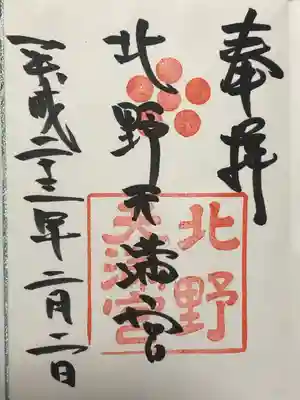 奉拝
北野天満宮
平成二十二年二月二日
北野
天満宮